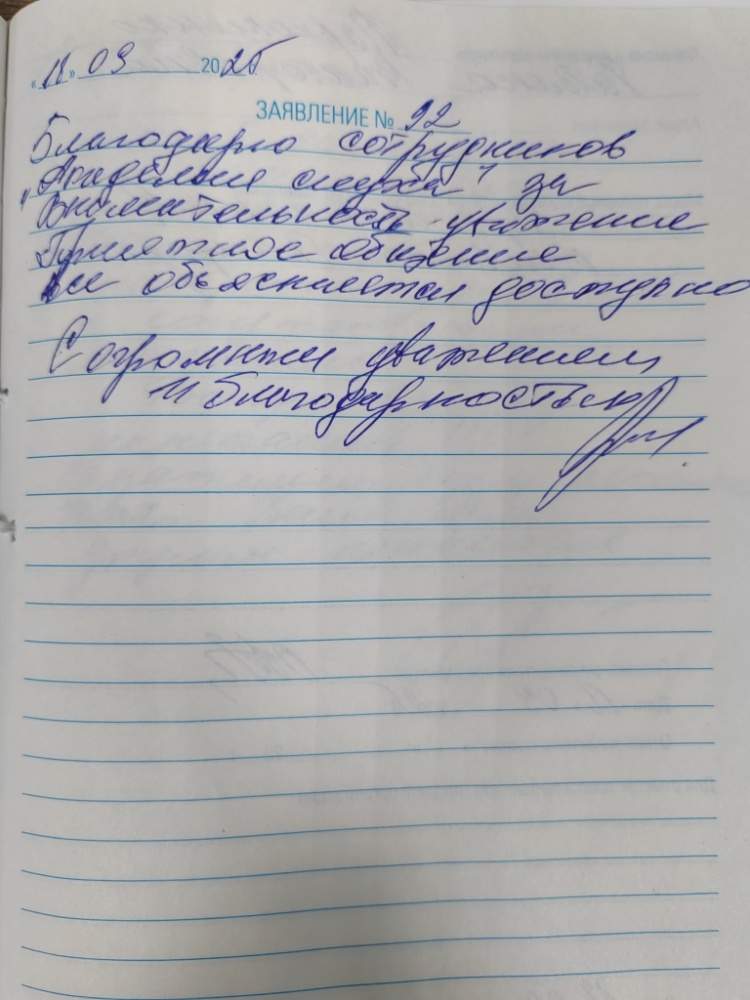 «11» 03 2026
ЗАЯВЛЕНИЕ № 92
Благодарю сотрудников
служба" за
внимательность уважение
Приятное общение
все объясняется доступно
С огромным уважением
и благодарностью